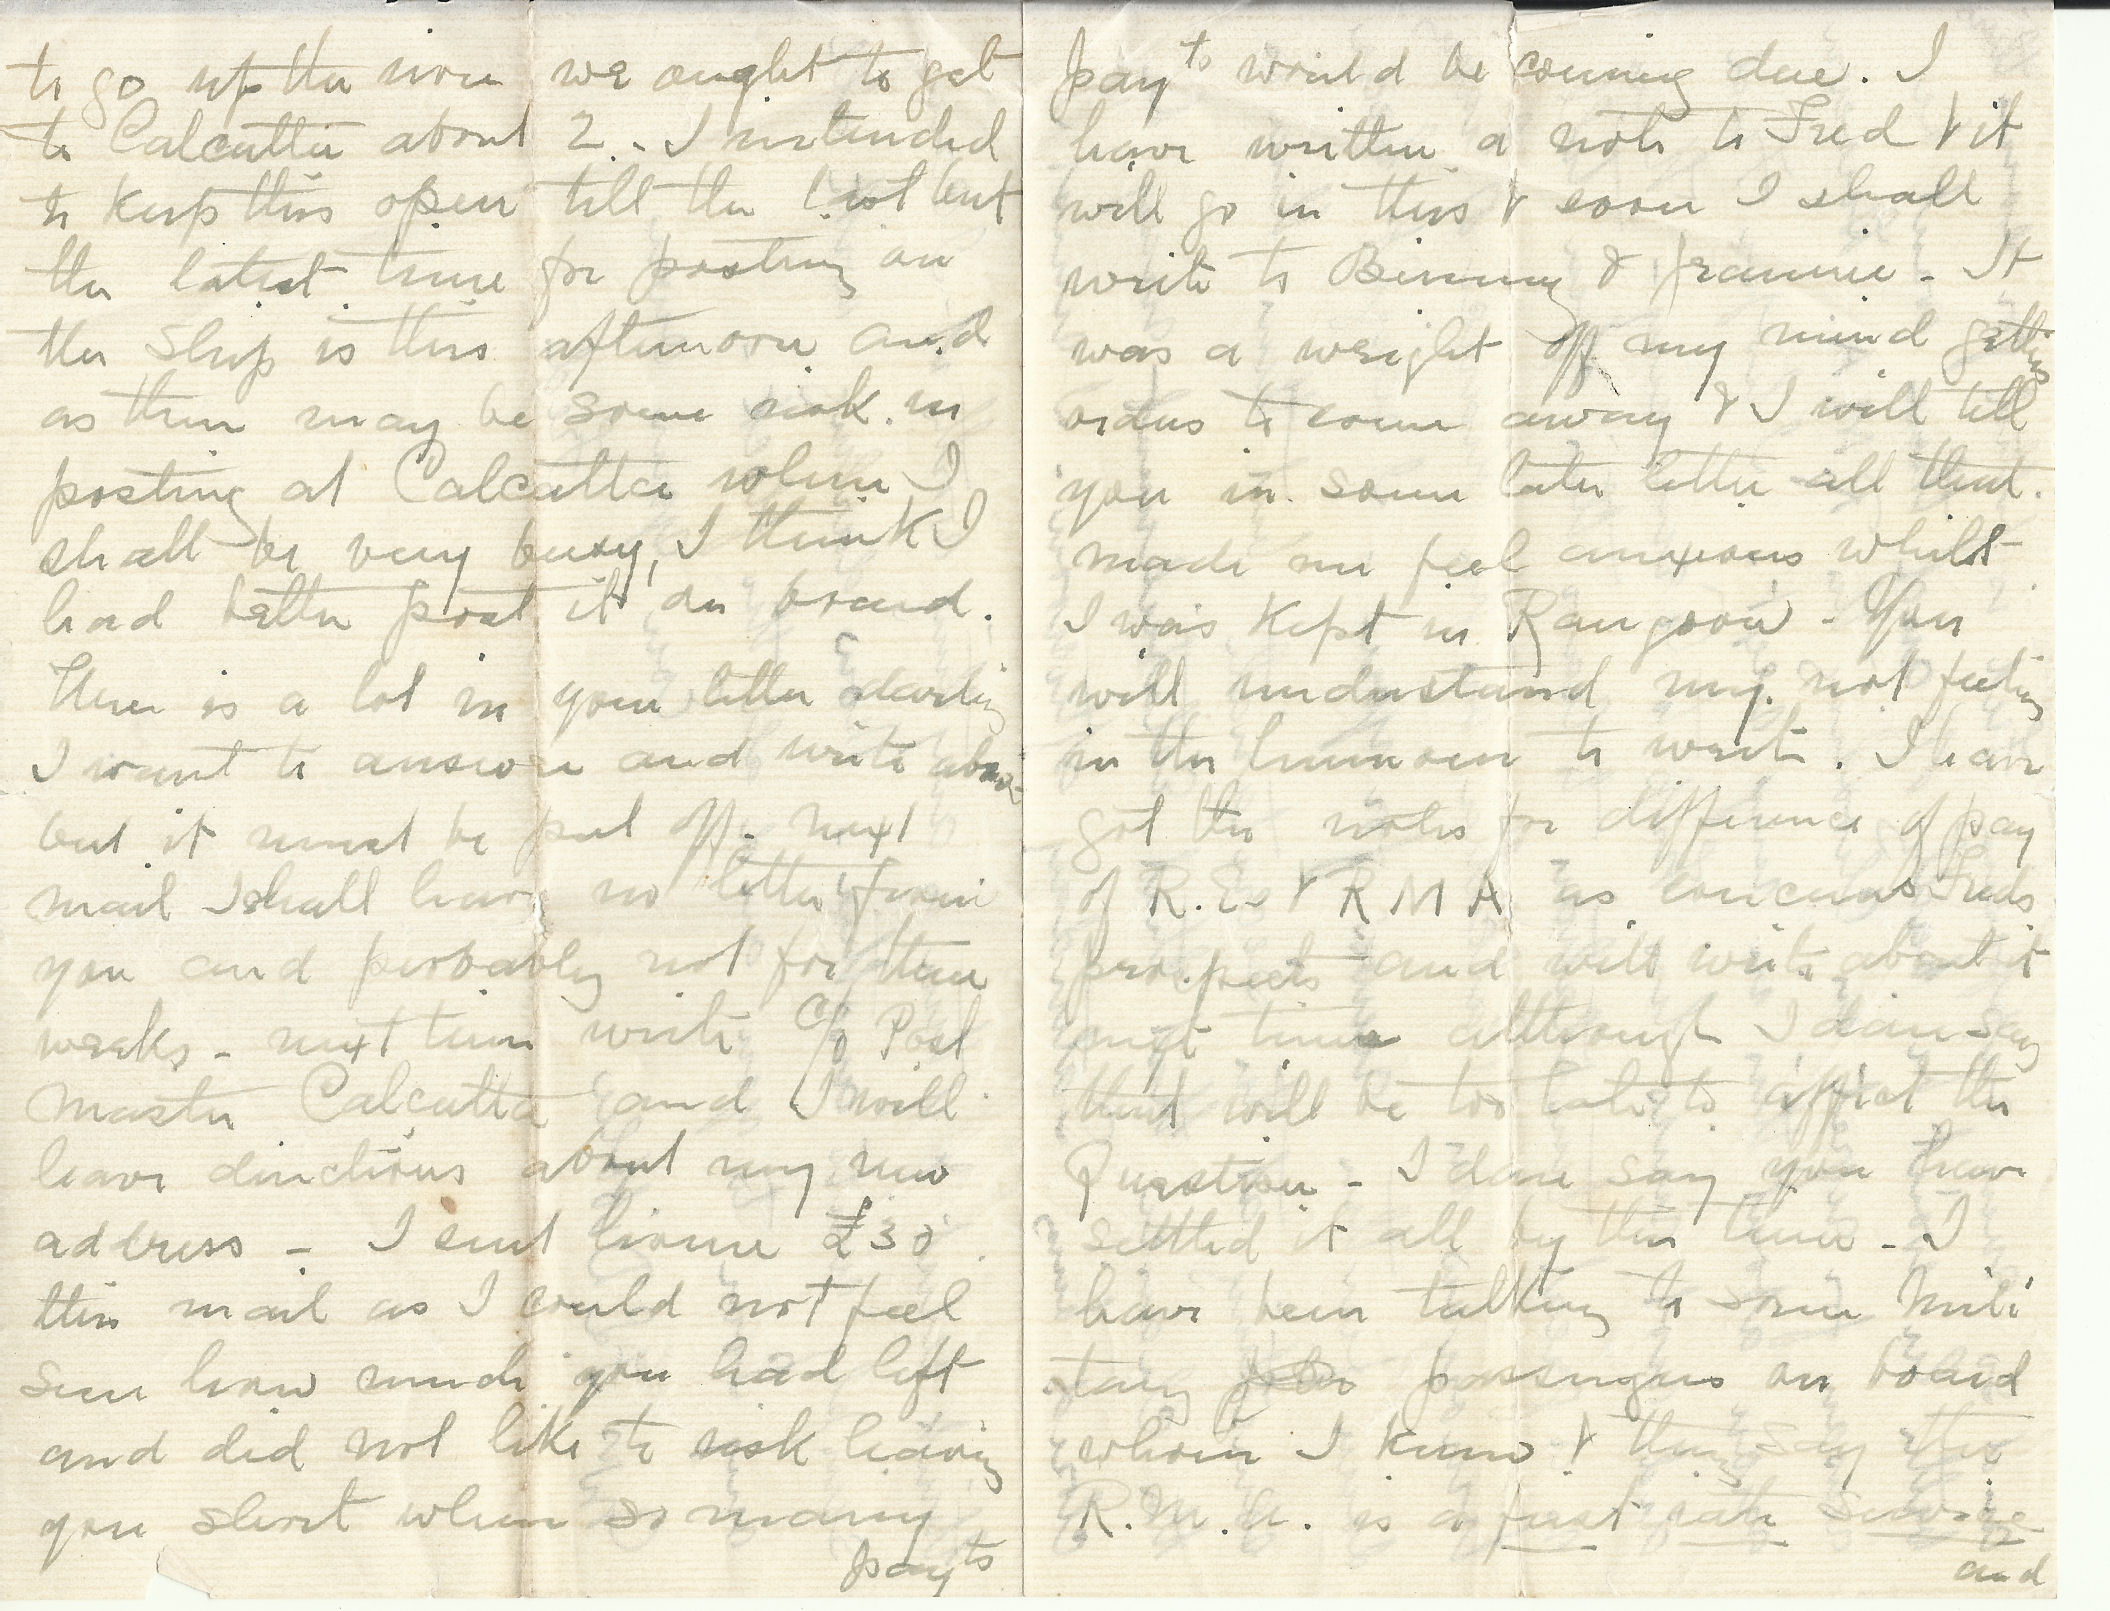 to go up the river we ought to get
to Calcutta about 2 - I intended
to keep this open till the last but
the latest time for posting on
the ship is this afternoon and
as there may be some risk in
posting at Calcutta when I
shall be very busy, I think I
had better post it on board.
There is a lot in your letter darling
I want to answer and write about
but it must be put off - next
mail I shall have no letter from
you and probably not for three
weeks - next time write c/o Post
Master Calcutta and I will
leave directions about my new
address - I sent home £30
this mail as I could not feel
sure how much you had left
and did not like to risk leaving
you short when so many
payts
payts would be coming due. I
have written a note to Fred & it
will go in this & soon I shall
write to Binny & Frannie - It
was a weight off my mind getting
orders to come away & I will tell
you in some later letter all that
made me feel anxious whilst
I was kept in Rangoon - You
will understand my not feeling
in the humour to write. I have
got the notes for difference of pay
of R.E. & RMA as concerns Freds
prospects and will write about it
next time although I daresay
that will be too late to affect the
Question - I dare say you have
settled it all by this time - I
have been talking to some Mili
tary passengers on board
whom I knew & they say the
R.M.A. is a first rate service
and